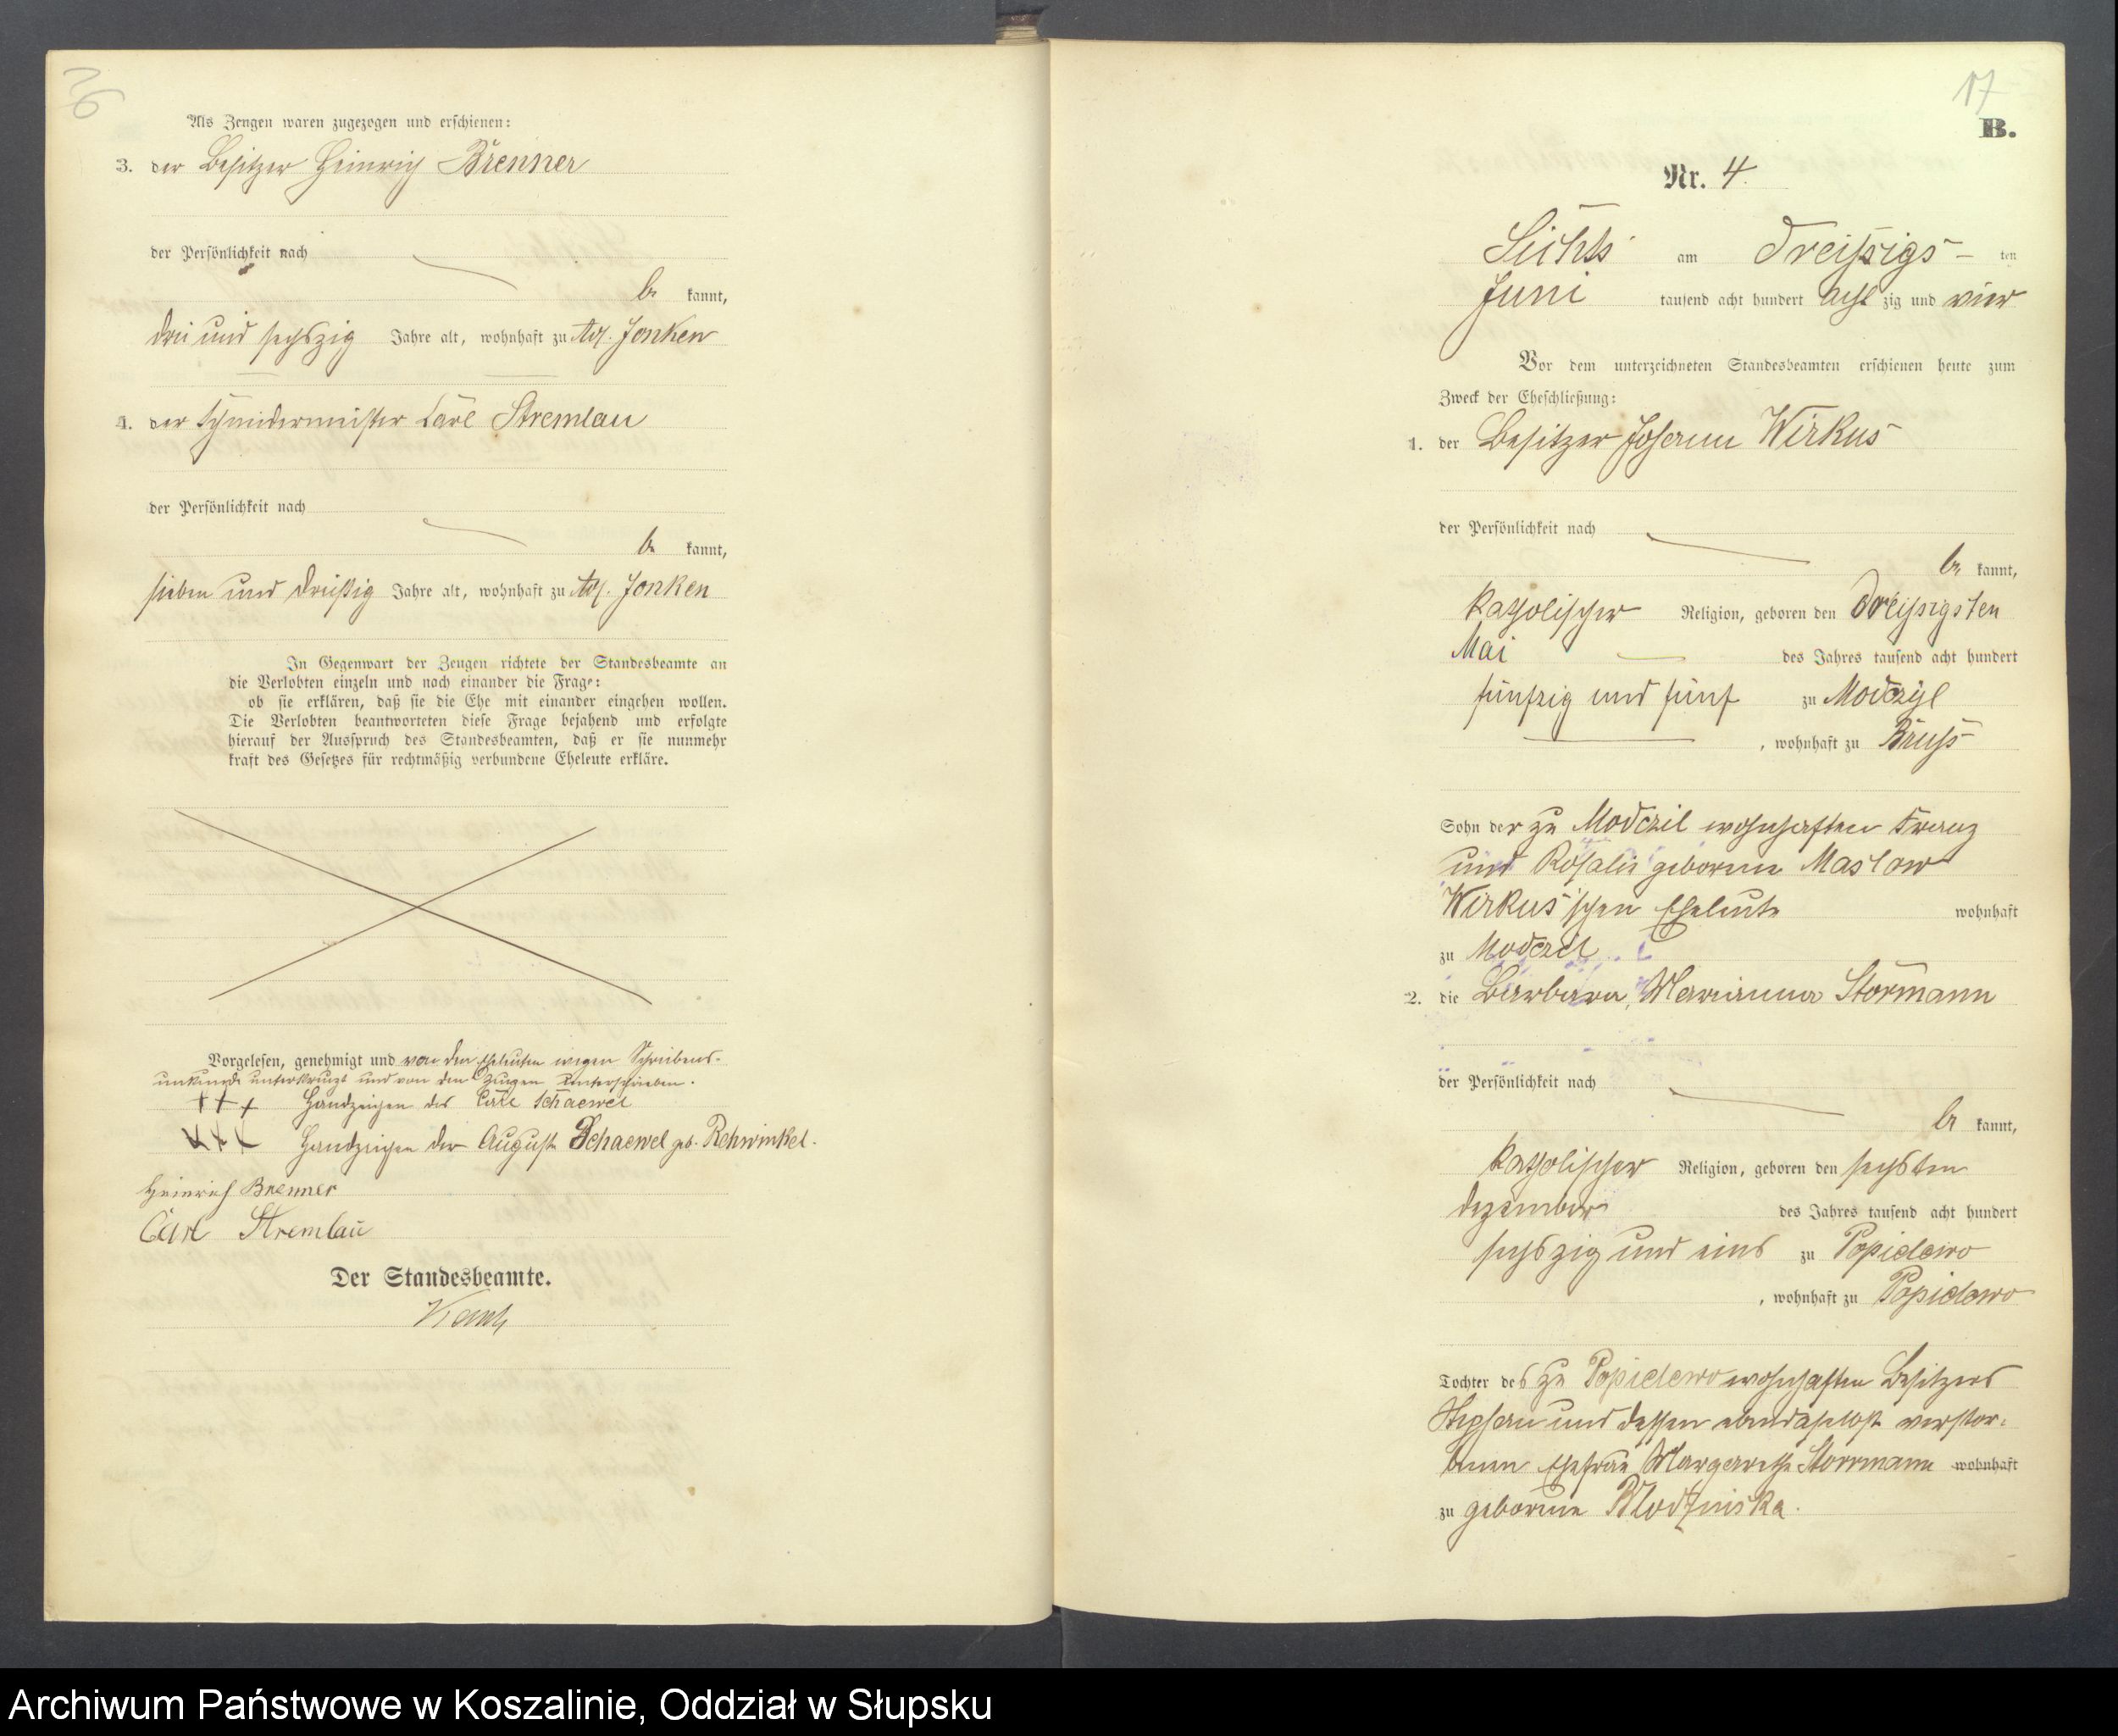 26
Als Zeugen waren zugezogen und erschienen:
3. der Besitzer Heinrich Brenner
der Persönlichkeit nach
be kannt,
drei und sechszig Jahre alt, wohnhaft zu Adl. Jonken
4. der Schneidermeister Carl Stremlau
der Persönlichkeit nach
be kannt,
sieben und dreißig Jahre alt, wohnhaft zu Adl. Jonken
In Gegenwart der Zeugen richtete der Standesbeamte an
die Verlobten einzeln und nach einander die Frage:
ob sie erklären, daß sie die Ehe mit einander eingehen wollen.
Die Verlobten beantworteten diese Frage bejahend und erfolgte
hierauf der Ausspruch des Standesbeamten, daß er sie nunmehr
kraft des Gesetzes für rechtmäßig verbundene Eheleute erkläre.
Vorgelesen, genehmigt und von den Eheleuten wegen Schreibens-
unkunde unterkreuzt und von den Zeugen unterschrieben.
+++ Handzeichen des Carl Schaewel
+++ Handzeichen der Auguste Schaewel geb. Rehwinkel.
Heinrich Brenner
Carl Stremlau
Der Standesbeamte.
17
B.
Nr. 4.
am Dreißigs- ten
Juni tausend acht hundert acht zig und vier
Vor dem unterzeichneten Standesbeamten erschienen heute zum
Zweck der Eheschließung:
1. der Besitzer Johann Wirkus
der Persönlichkeit nach
be kannt,
katholischer Religion, geboren den dreißigsten
Mai des Jahres tausend acht hundert
fünfzig und fünf zu Modczyl
, wohnhaft zu Bruss
Sohn der zu Modczil wohnhaften Franz
und Rosalie geborene Maslow
Wirkus'schen Eheleute wohnhaft
zu Modczil
2. die Barbara, Marianna Störmann
der Persönlichkeit nach
be kannt,
katholischer Religion, geboren den sechsten
Dezember des Jahres tausend acht hundert
sechszig und eins zu Popidewo
, wohnhaft zu Popidewo
Tochter des zu Popidewo wohnhaften Besitzers
Stephan und dessen ebendaselbst verstor-
benen Ehefrau Margarethe Storrmann wohnhaft
zu geborene
Archiwum Państwowe w Koszalinie, Oddział w Słupsku